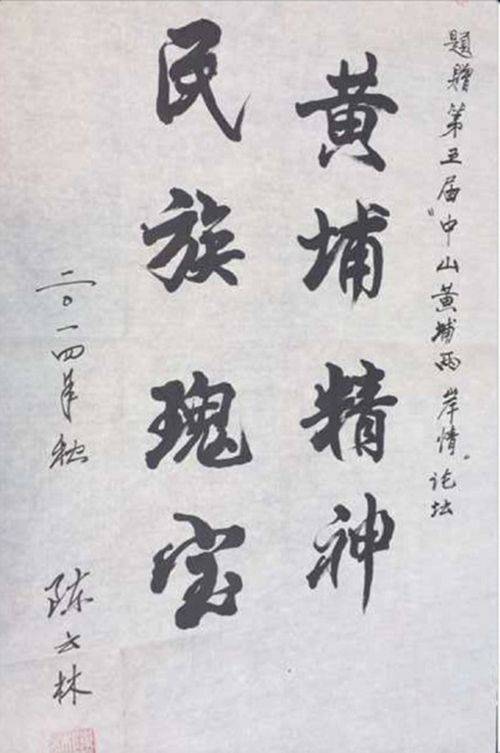 题赠第五届“中山黄埔两岸情”论坛
黄埔精神
民族瑰宝
二〇一四年秋
陈云林